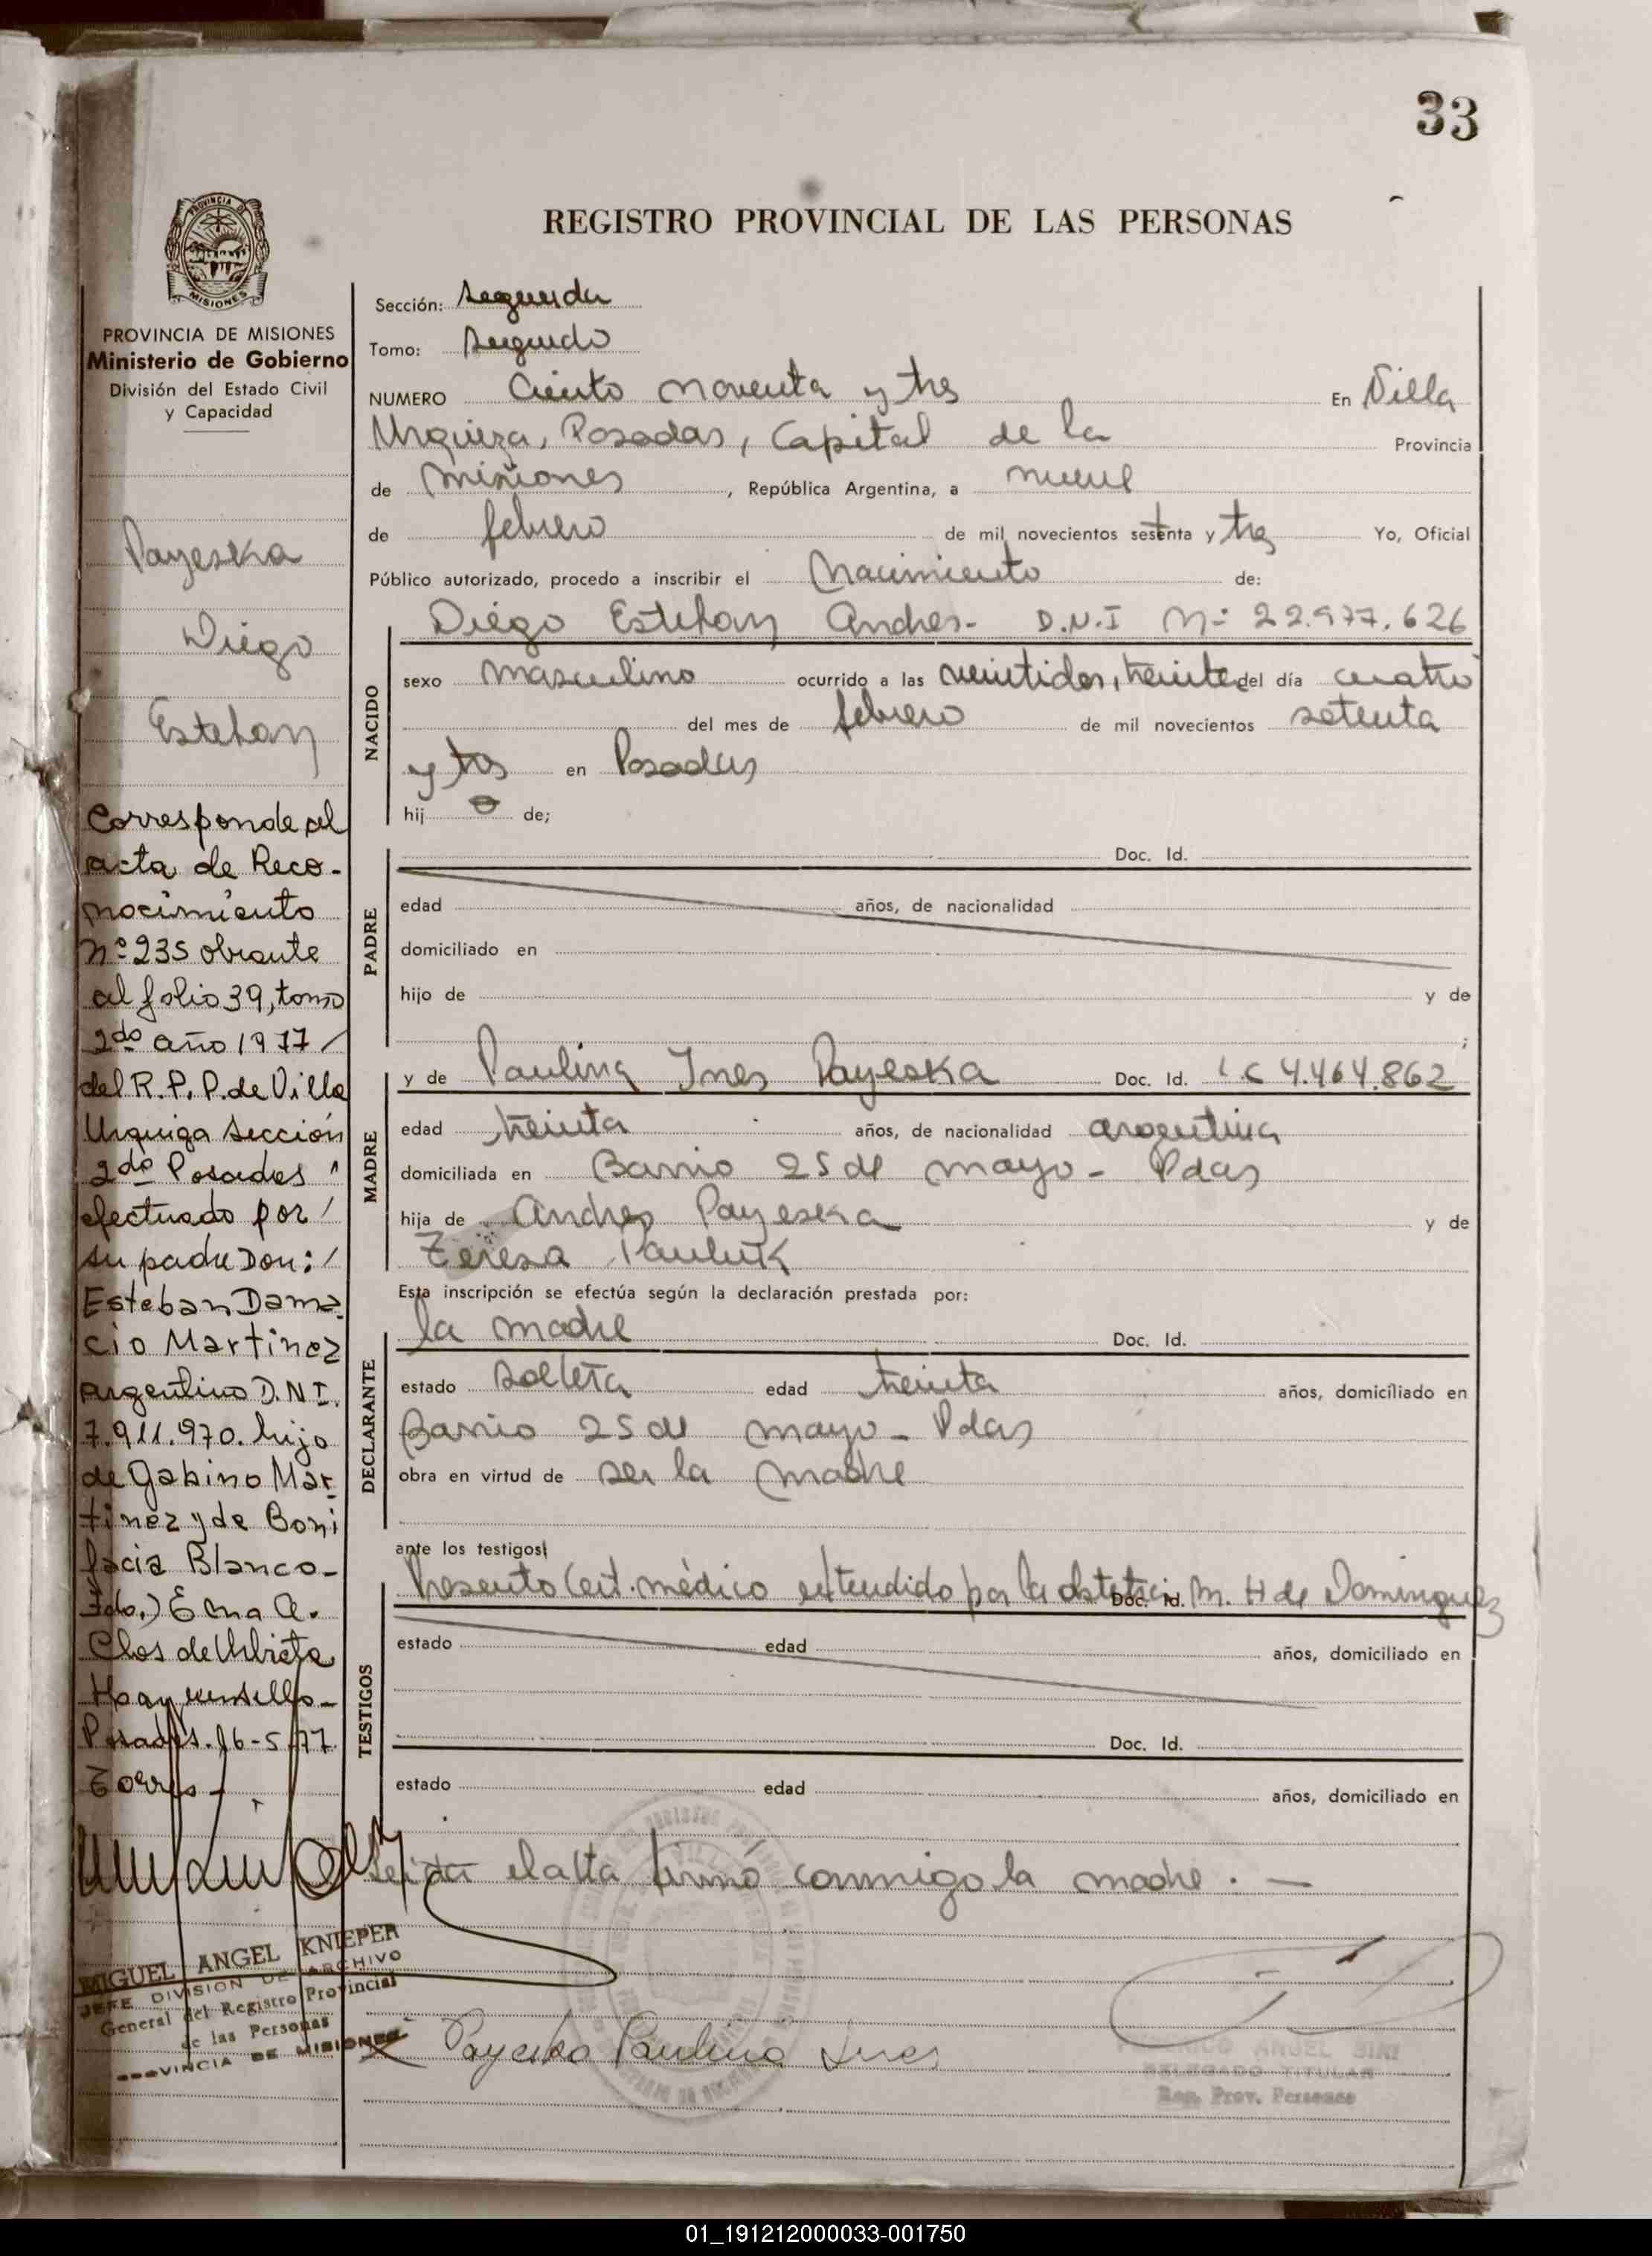 33
REGISTRO PROVINCIAL DE LAS PERSONAS
PROVINCIA DE
MISIONES
PROVINCIA DE MISIONES
Ministerio de Gobierno
División del Estado Civil
y Capacidad
Payeska
Diego
Esteban
Corresponde al
acta de Reco-
nocimiento
nº 235 obrante
al folio 39, tomo
2do año 1977/
del R.P.P. de Villa
Urquiza Sección
2da Posadas
efectuado por/
su padre Don:/
Esteban Dama
cio Martinez
argentino D.N.I.
7.911.970. hijo
de Gabino Mar
tinez y de Boni
facia Blanco-
Fdo.) Ema A.
Clos de
Hay un sello-
Posadas. 16-5-77.
Torres-
MIGUEL ANGEL KNIEPER
JEFE DIVISION DE ARCHIVO
General del Registro Provincial
de las Personas
PROVINCIA DE MISIONES
Sección: Segunda
Tomo: Segundo
NUMERO Ciento noventa y tres En Villa
Urquiza, Posadas, Capital de la Provincia
de misiones, República Argentina, a nueve
de febrero de mil novecientos setenta y tres Yo, Oficial
Público autorizado, procedo a inscribir el Nacimiento de:
Diego Esteban Andres- D.N.I Nº 22.977.626
NACIDO
sexo masculino ocurrido a las veintidos, treinta del día cuatro
del mes de febrero de mil novecientos setenta
y tres en Posadas
hijo de;
PADRE
Doc. Id.
edad años, de nacionalidad
domiciliado en
hijo de y de
;
MADRE
y de Paulina Ines Payeska Doc. Id. L.C 4.464.862
edad treinta años, de nacionalidad argentina
domiciliada en Barrio 25 de mayo- Pdas
hija de Andres Payeska y de
Teresa Pauluk
Esta inscripción se efectúa según la declaración prestada por:
DECLARANTE
la madre Doc. Id.
estado soltera edad treinta años, domiciliado en
Barrio 25 de mayo- Pdas
obra en virtud de ser la madre
ante los testigos:
TESTIGOS
Presento Cert. médico extendido por la obstetricia M. H de Dominguez Doc. Id.
estado edad años, domiciliado en
Doc. Id.
estado edad años, domiciliado en
Leida el acta firmó conmigo la madre. -
Payeska Paulina Ines
ANGEL BINI
DELEGADO TITULAR
Reg. Prov. Personas
01_191212000033-001750